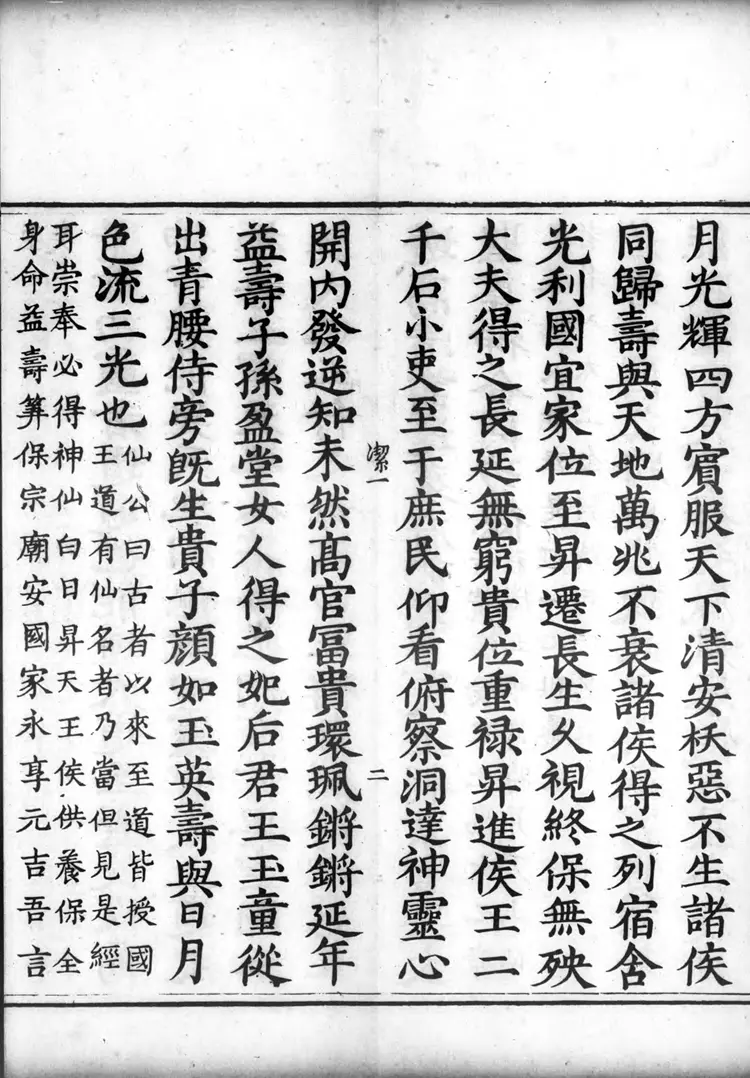 月光輝四方賓服天下清安枖惡不生諸侯
同歸壽與天地萬兆不衰諸侯得之列宿舍
光利國宜家位至昇遷長生久視終保無殃
大夫得之長延無窮貴位重禄昇進侯王二
千石小吏至于庶民仰看俯察洞達神靈心
潔一
二
開内發逆知未然髙官冨貴環珮鏘鏘延年
益壽子孫盈堂女人得之妃后君王玉童從
出青腰侍旁旣生貴子顔如玉英壽與日月
色流三光也
仙公曰古者以來至道皆授國
王道有仙名者乃當但見是經
耳崇奉必得神仙白日昇天王侯供養保全
身命益壽筭保宗廟安國家永享元吉吾言